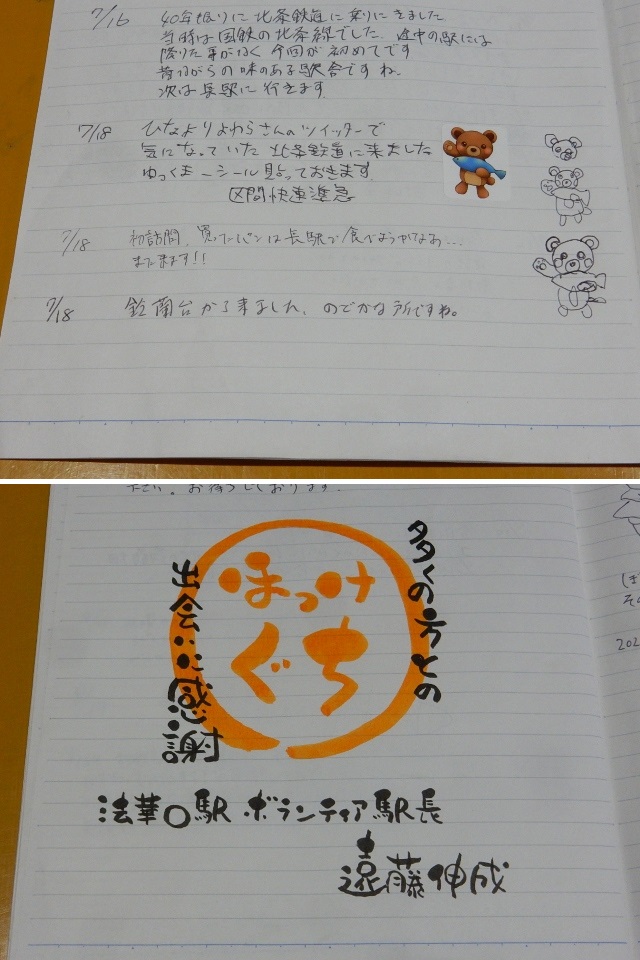 7/16 40年振りに北条鉄道に乗りにきました
当時は国鉄の北条線でした。途中の駅には
降りた事がなく今回が初めてです
昔ながらの味のある駅舎ですね。
次は長駅に行きます
7/18 ひなよりよわらさんのツイッターで
気になっていた北条鉄道に来ました
ゆっくまーシール貼っておきます。
区間快速準急
7/18 初訪問、買ったパンは長駅で食べようかなぁ…
また来ます!!
7/18 鈴蘭台から来ました。のどかな所ですね。
ださい。お待ちしております。
多くの方との
ほっけ
ぐち
出会いに感謝
法華口駅 ボランティア駅長
遠藤伸成
202